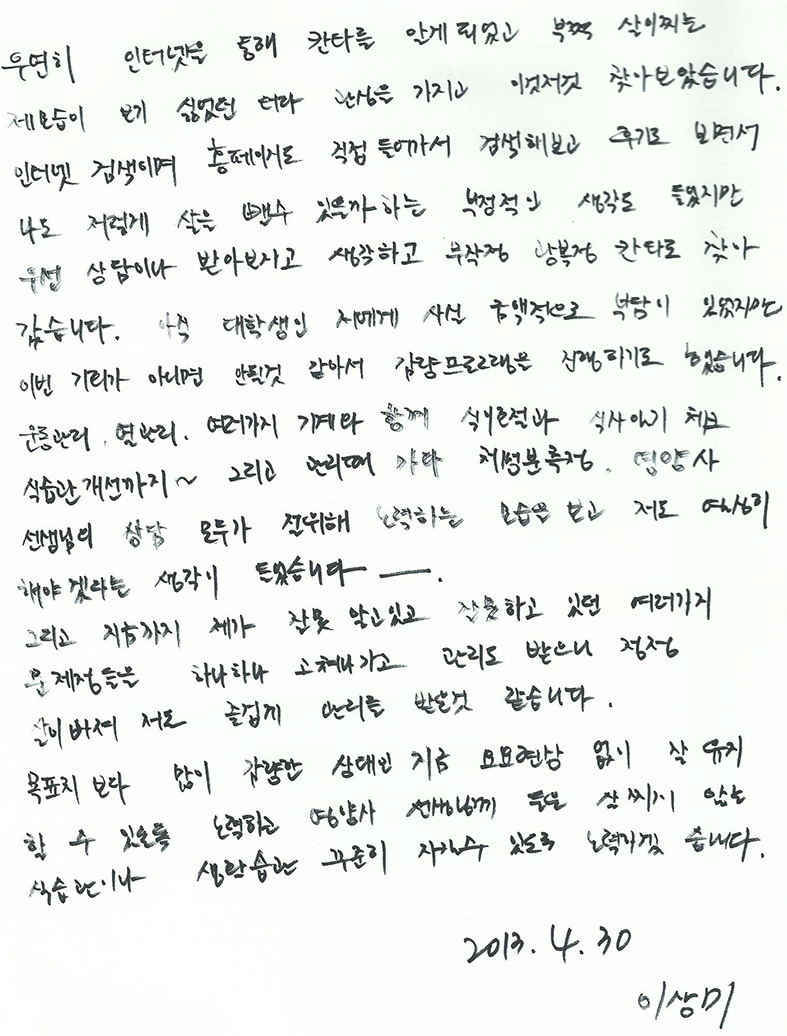 우연히 인터넷을 통해 칸타를 알게되었고 부쩍 살이찌는
제모습이 보기 싫었던 터라 관심을 가지고 이것저것 찾아보았습니다.
인터넷 검색이며 홈페이지도 직접들어가서 검색해보고 후기로 보면서
나도 저렇게 살을 뺄수 있을까하는 부정적인 생각도 들었지만
우선 상담이나 받아보자고 생각하고 무작정 광복점 칸타로 찾아
갔습니다. 아직 대학생인 저에게 사실 금액적으로 부담이 있었지만
이번 기회가 아니면 안될것 같아서 감량프로그램을 진행하기로 했습니다.
운동관리, 열관리, 여러가지 기계와 함께 식이조절과 식사일기 체크
식습관개선까지~ 그리고 관리때 마다 체성분측정, 영양사
선생님의 상담 모두가 전위해 노력하는 모습을 보고 저도 열심히
해야겠다는 생각이 들었습니다 ㅡ.
그리고 지금까지 제가 잘못 알고있고 잘못하고 있던 여러가지
문제점들을 하나하나 고쳐나가고 관리도 받으니 점점
살이빠져 저도 즐겁게 관리를 받은것 같습니다.
목표치보다 많이 감량한 상태인 지금 요요현상 없이 잘 유지
할 수 있도록 노력하고 영양사 선생님께 들은 살 찌지 않는
식습관이나 생활습관 꾸준히 지킬수 있도록 노력하겠습니다.
2013. 4. 30
이상미